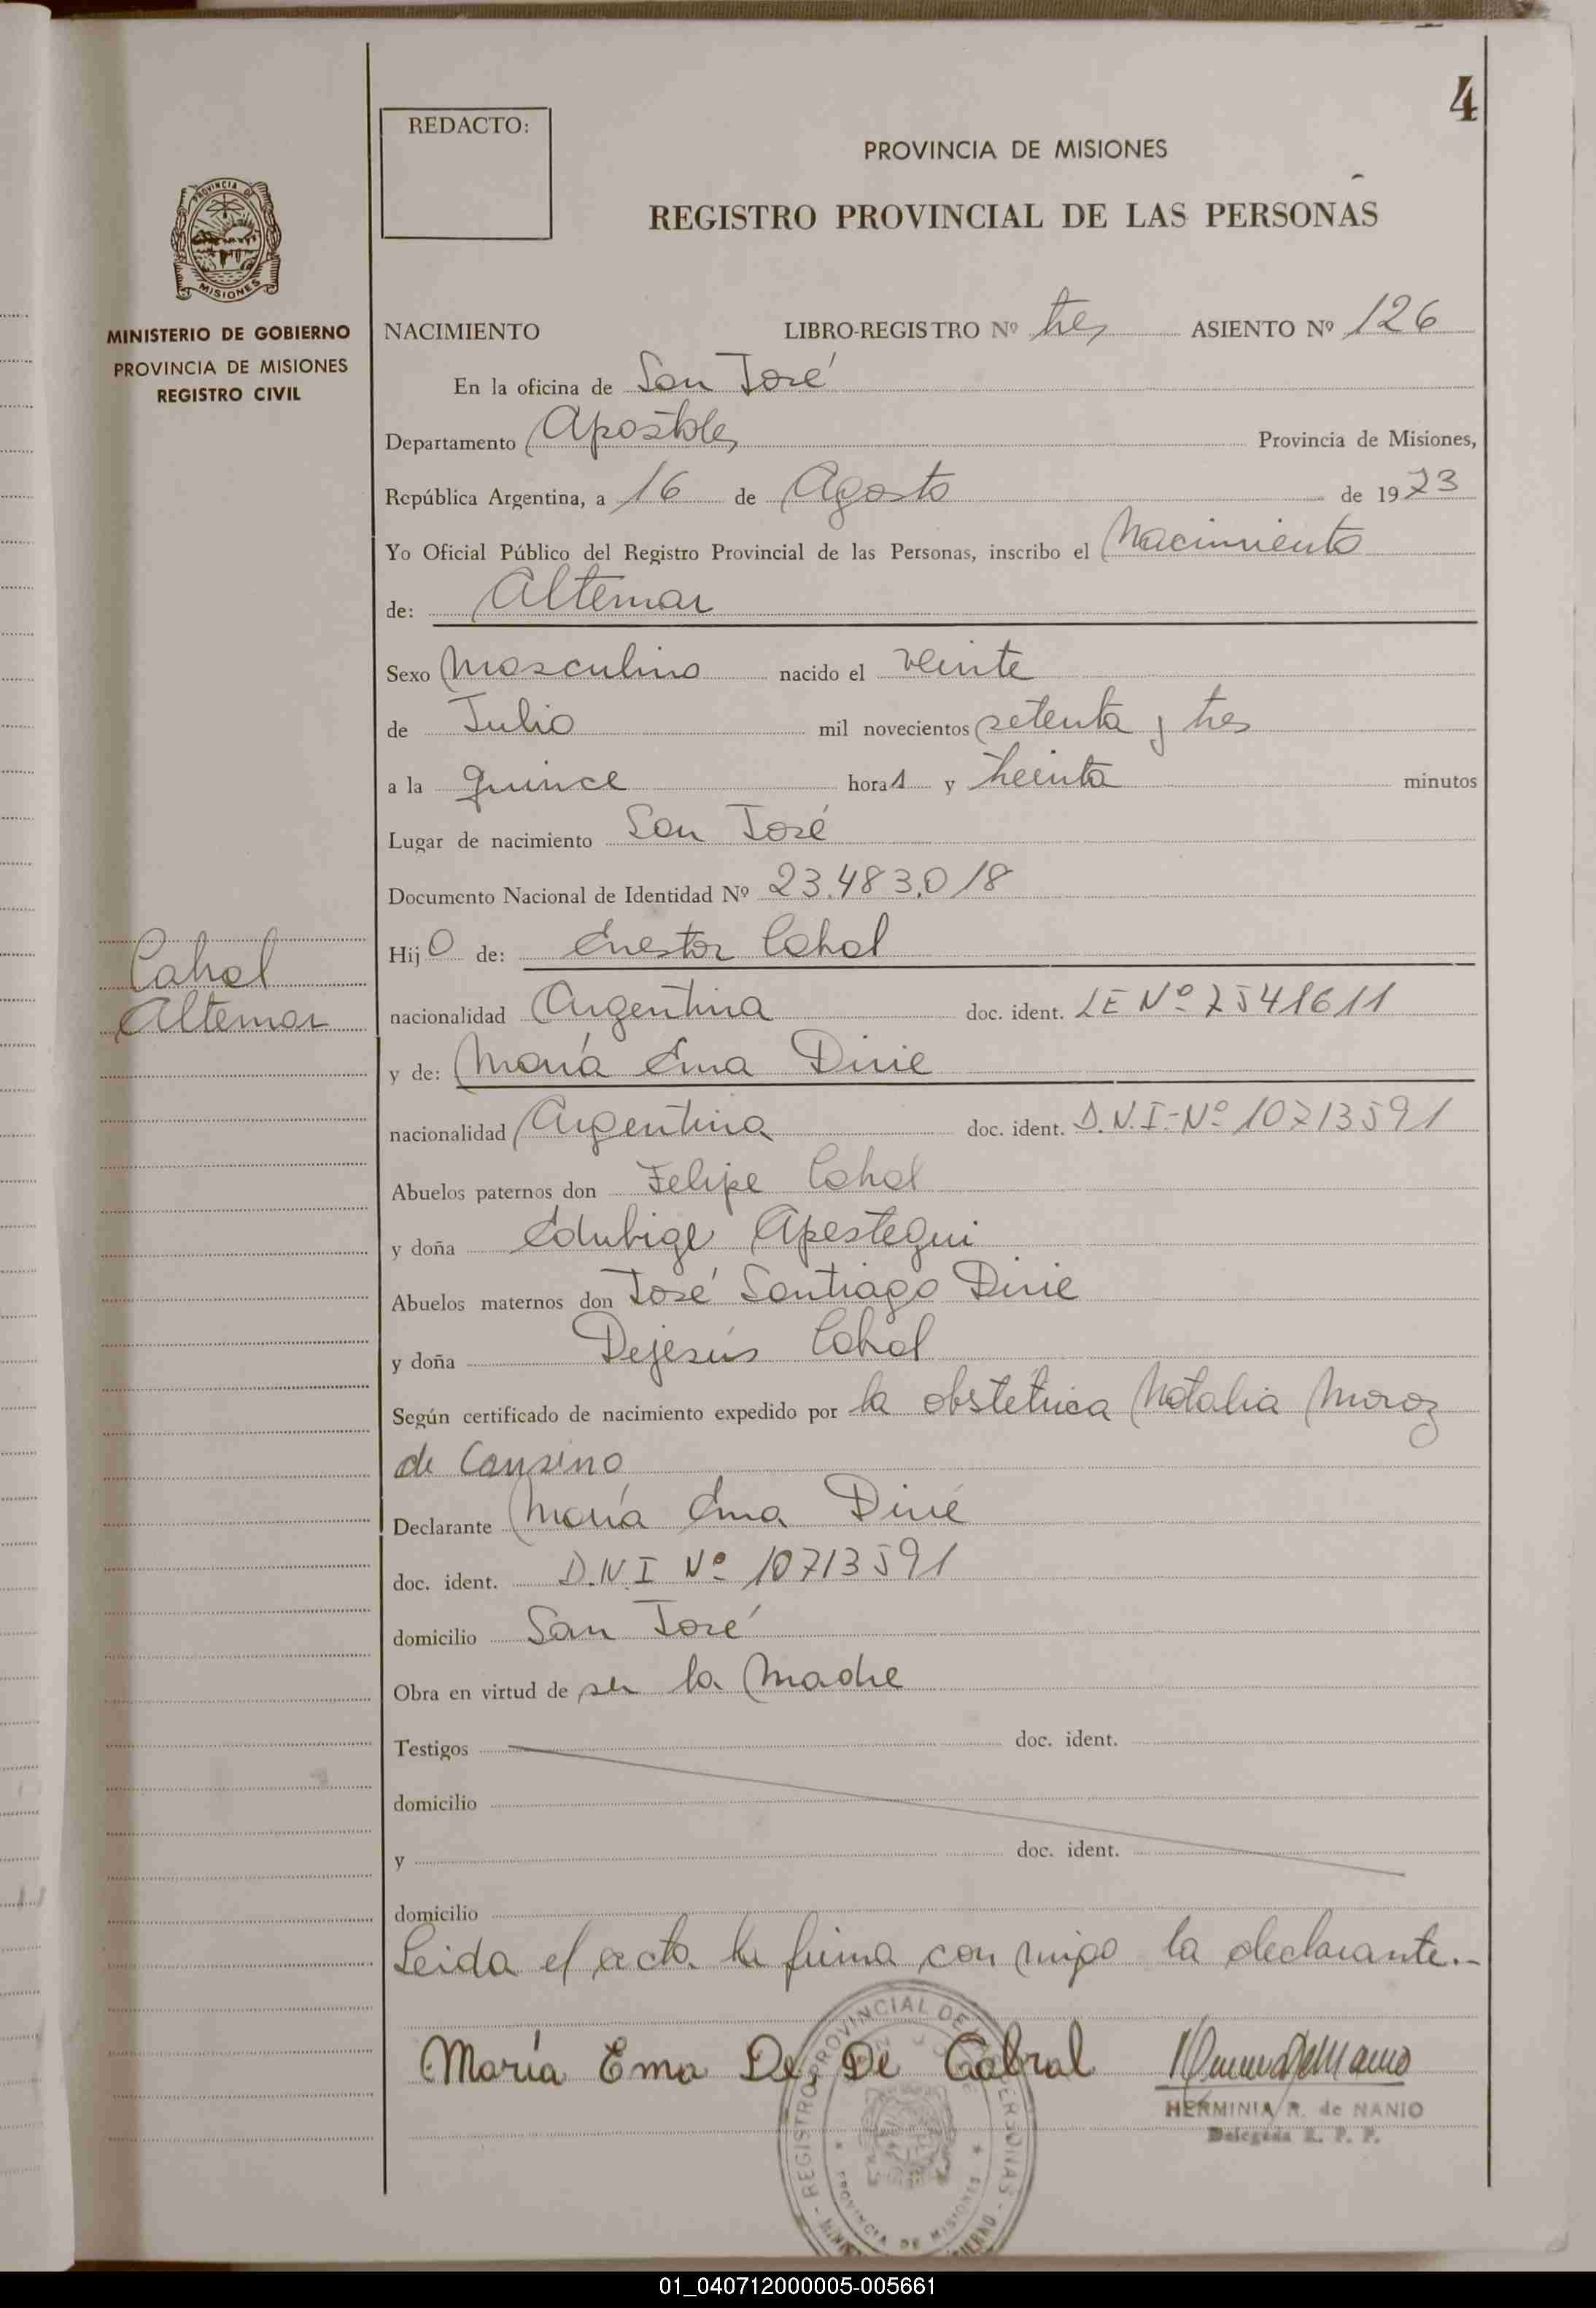 4
REDACTO:
PROVINCIA DE MISIONES
REGISTRO PROVINCIAL DE LAS PERSONAS
PROVINCIA DE
MISIONES
MINISTERIO DE GOBIERNO
PROVINCIA DE MISIONES
REGISTRO CIVIL
NACIMIENTO LIBRO-REGISTRO Nº tres ASIENTO Nº 126
En la oficina de San José
Departamento Apóstoles Provincia de Misiones,
República Argentina, a 16 de Agosto de 1973
Yo Oficial Público del Registro Provincial de las Personas, inscribo el Nacimiento
de: Altemar
Sexo Masculino nacido el veinte
de Julio mil novecientos setenta y tres
a la quince horas y treinta minutos
Lugar de nacimiento San José
Documento Nacional de Identidad Nº 23.483.018
Hijo de: Enestor Cabral
Cabral
Altemar
nacionalidad Argentina doc. ident. LE Nº 7541611
y de: María Ema
nacionalidad Argentina doc. ident. D.N.I.-Nº 10713591
Abuelos paternos don Felipe Cabral
y doña Edubige Apestegui
Abuelos maternos don José Santiago
y doña Dejesús Cabral
Según certificado de nacimiento expedido por la obstetrica Natalia Moroz
de
Declarante María Ema
doc. ident. D.N.I Nº 10713591
domicilio San José
Obra en virtud de ser la Madre
Testigos doc. ident.
domicilio
y doc. ident.
domicilio
Leida el acta la firma con migo la declarante.-
María Ema De De Cabral
HERMINIA R. de NANIO
Delegada R. P. P.
REGISTRO PROVINCIAL DE PERSONAS
PROVINCIA DE MISIONES
01_040712000005-005661